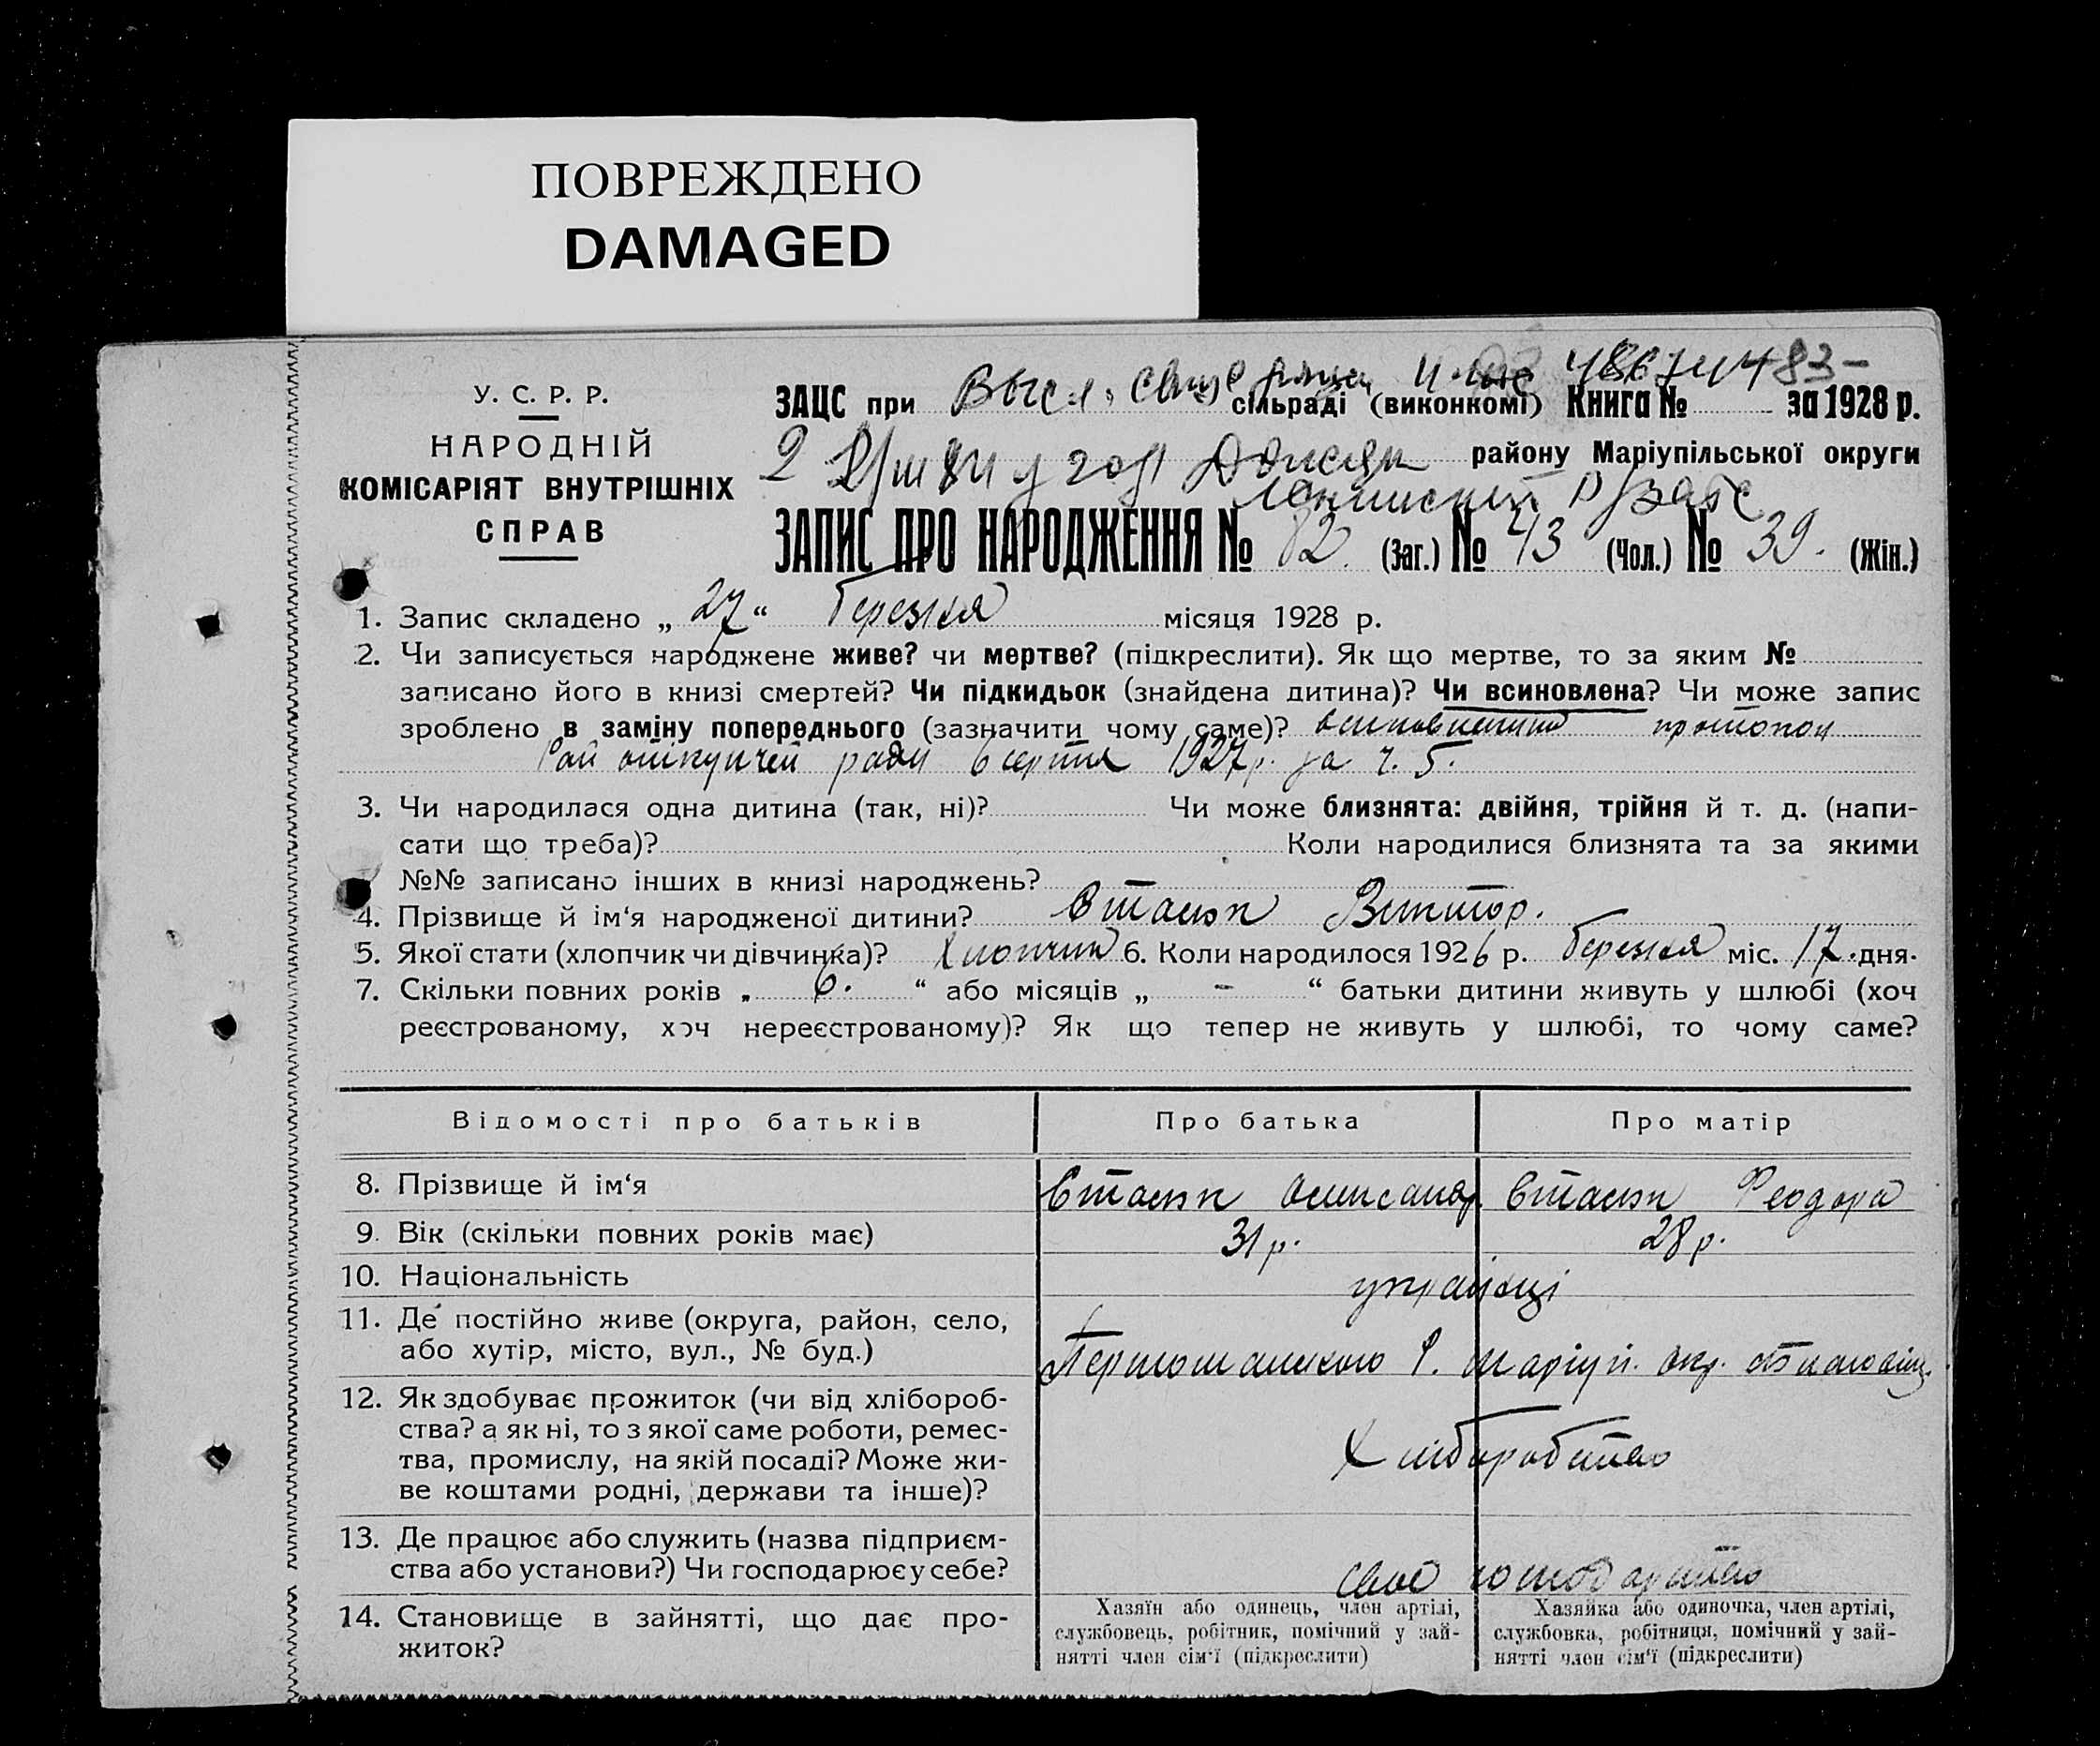 ПОВРЕЖДЕНО
DAMAGED
У. С. Р. Р.
НАРОДНІЙ
КОМІСАРІЯТ ВНУТРІШНІХ
СПРАВ
ЗАЦС при Высл. сільраді (виконкомі) Книга № за 1928 р.
району Маріупільської округи
ЗАПИС ПРО НАРОДЖЕННЯ № 82 (Заг.) № 43 (Чол.) № 39. (Жін.)
1. Запис складено „ 27 “ березня місяця 1928 р.
2. Чи записується народжене живе? чи мертве? (підкреслити). Як що мертве, то за яким №
записано його в книзі смертей? Чи підкидьок (знайдена дитина)? Чи всиновлена? Чи може запис
зроблено в заміну попереднього (зазначити чому саме)? протокол
Рай опікунчей ради 6 серпня 1927 р. за ч. 5.
3. Чи народилася одна дитина (так, ні)? Чи може близнята: двійня, трійня й т. д. (напи-
сати що треба)? Коли народилися близнята та за якими
№№ записано інших в книзі народжень?
4. Прізвище й ім‘я народженої дитини? Віктор.
5. Якої стати (хлопчик чи дівчинка)? Хлопчик 6. Коли народилося 1926 р. березня міс. 17. дня.
7. Скільки повних років „ 6. “ або місяців „ – “ батьки дитини живуть у шлюбі (хоч
реєстрованому, хоч нереєстрованому)? Як що тепер не живуть у шлюбі, то чому саме?
Відомості про батьків Про батька Про матір
8. Прізвище й ім‘я Феодора
9. Вік (скільки повних років має) 31 р. 28 р.
10. Національність українці
11. Де постійно живе (округа, район, село,
або хутір, місто, вул., № буд.) Р. Маріуп. окр.
12. Як здобуває прожиток (чи від хлібороб-
ства? а як ні, то з якої саме роботи, ремес-
тва, промислу, на якій посаді? Може жи-
ве коштами родні, держави та інше)? Хліборобство
13. Де працює або служить (назва підприєм-
ства або установи?) Чи господарює у себе? своє господарство
14. Становище в зайнятті, що дає про-
житок?
Хазяїн або одинець, член артілі,
службовець, робітник, помічний у зай-
нятті член сім‘ї (підкреслити)
Хазяйка або одиночка, член артілі,
службовка, робітниця, помічний у зай-
нятті член сім‘ї (підкреслити)